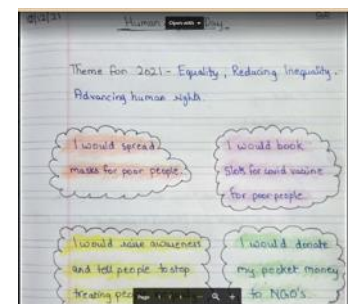 Human
Day
Theme for 2021 - Equality, Reducing Inequality,
Advancing human rights
I would spread
masks for poor people.
I would book
slots for covid vaccine
for poor people
I would raise awareness
and tell people to stop
treating
I would donate
my pocket money
to NGO's
Open with
Page